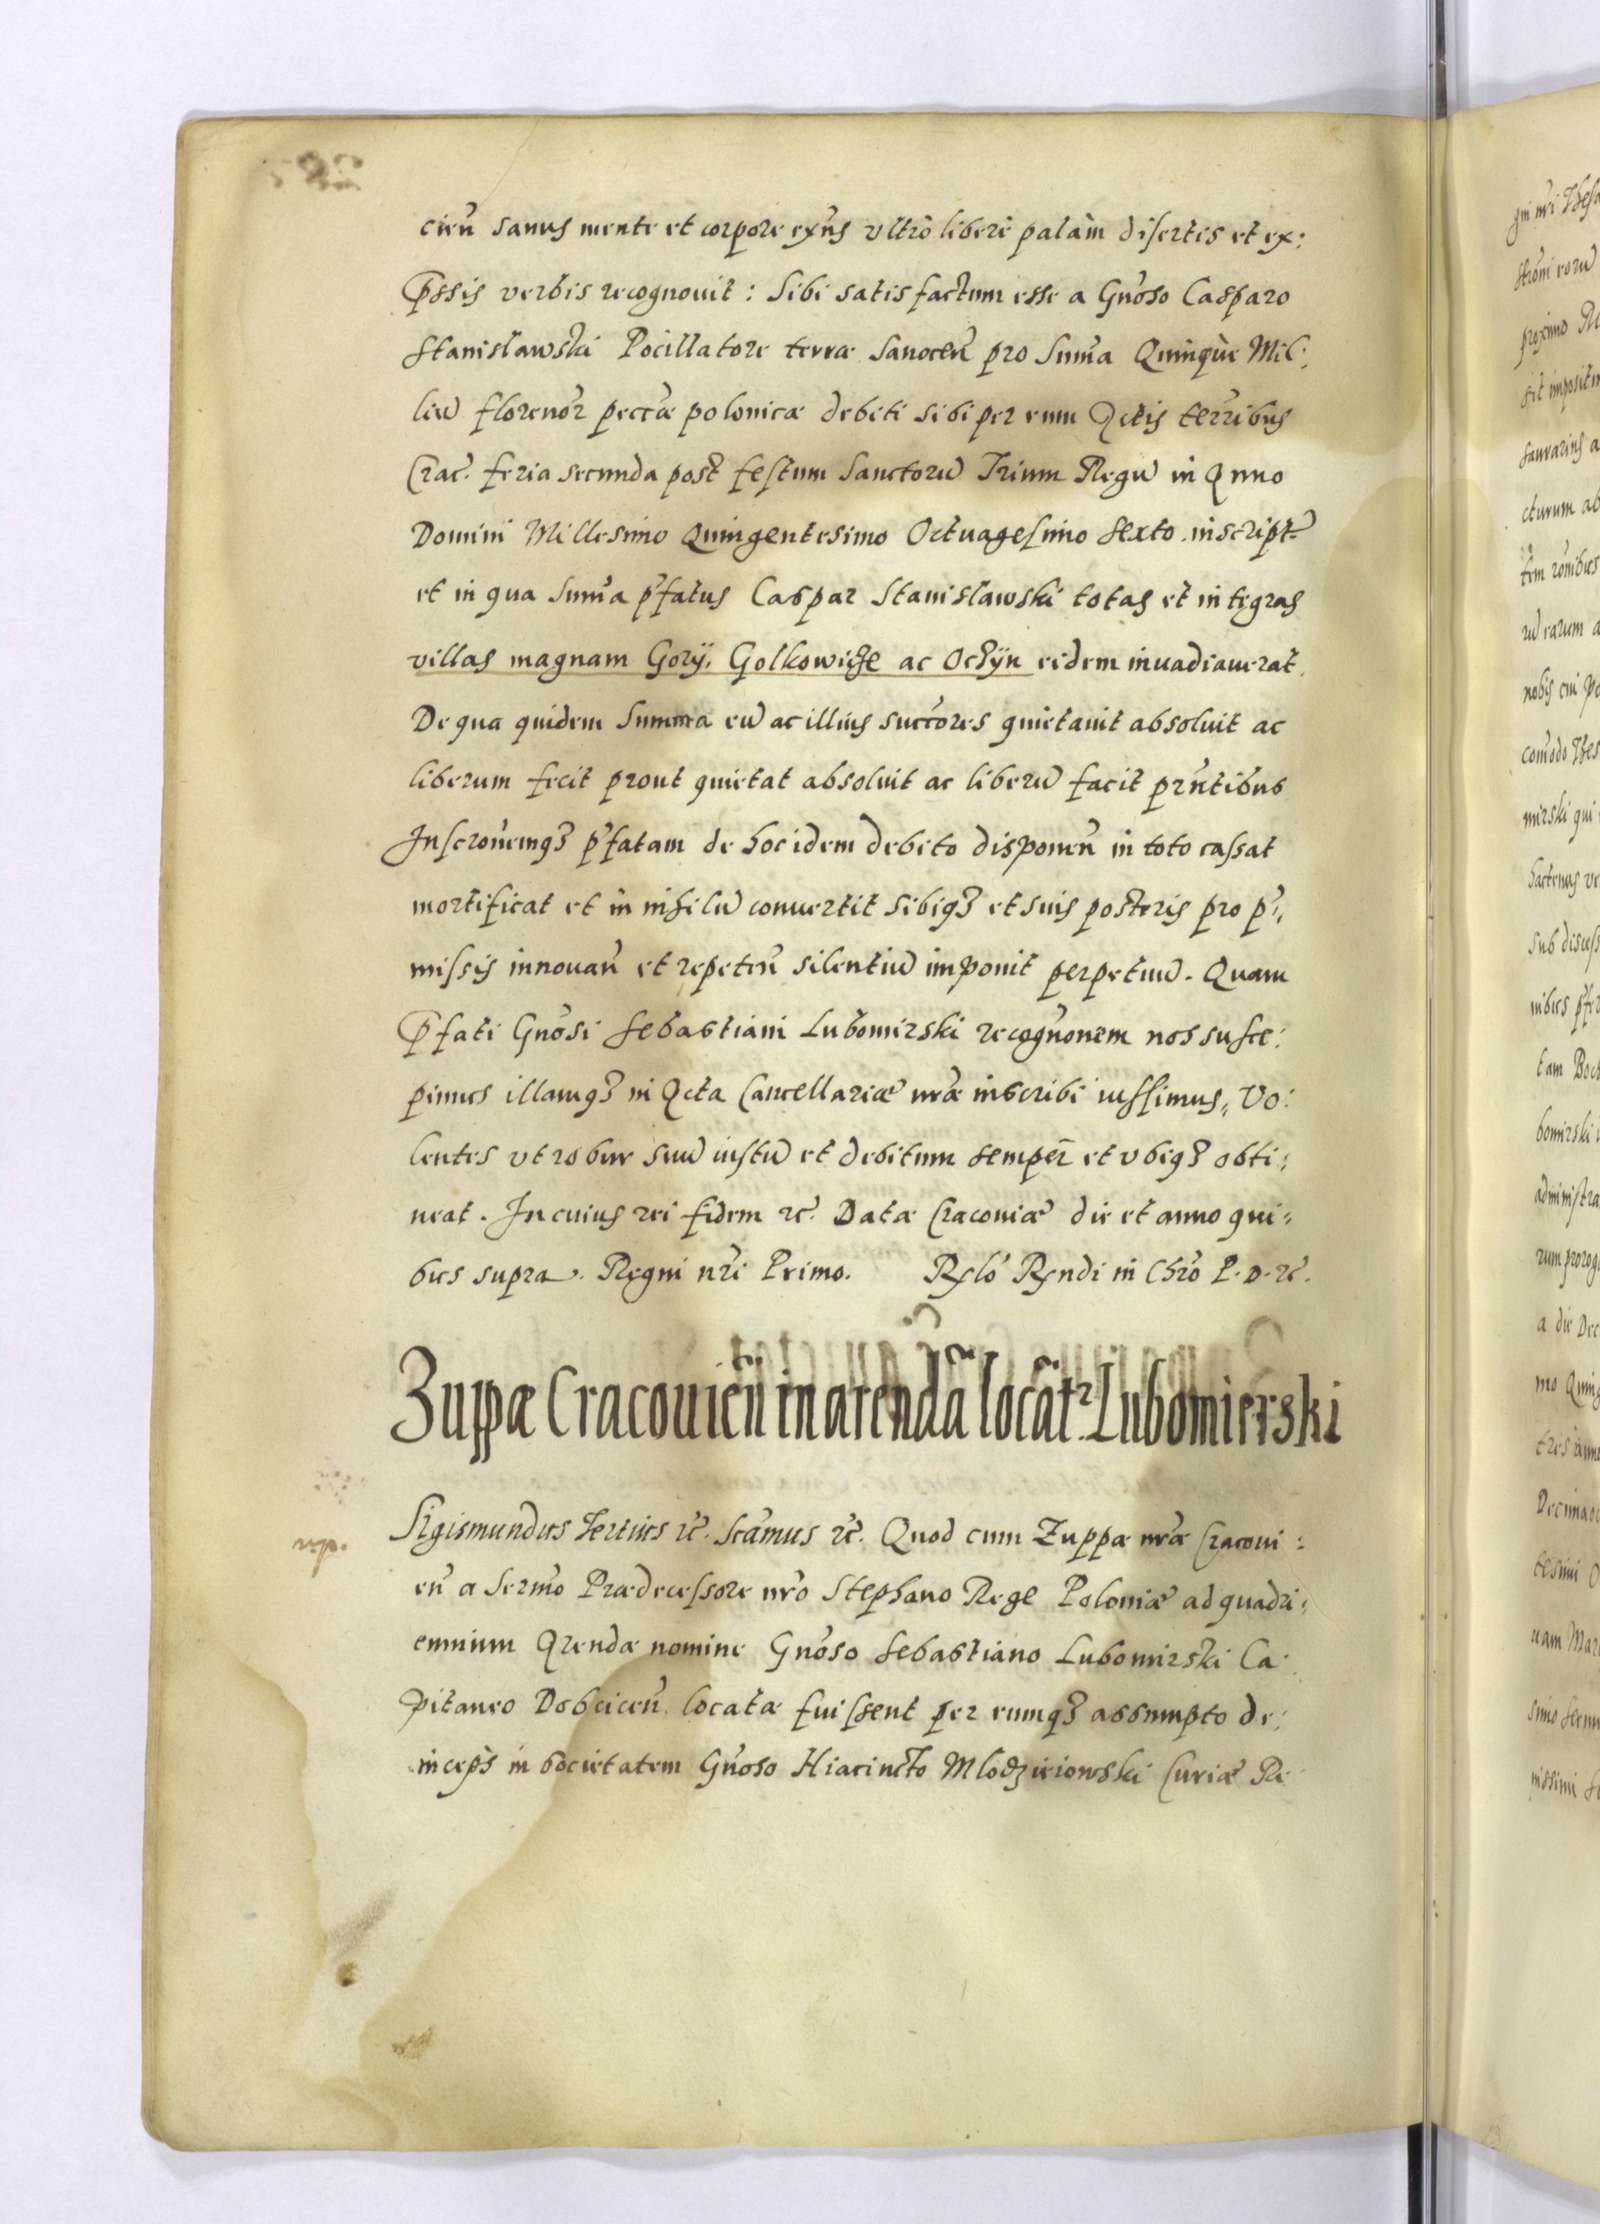 cien̄ sanus mente et corpore exn̄s ultrò liberè palàm disertis et ex:
p̄ssis verbis recognovit: Sibi satisfactum esse a Gn̄oso Casparo
Stanislawski Pocillatore terræ Sanocen̄ pro Sum̄a Quinque Mil:
liū florenor̄ pecc̄æ polonicæ debiti sibi per eum Actis terr̄ibus
Crac. feria secunda post festum Sanctorū Trium Regū in Anno
Domini Millesimo Quingentesimo Octuagesimo Sexto inscript̄
et in qua Sum̄a p̄fatus Caspar Stanislawski totas et integras
villas magnam Gory, Golkowicze ac Ochyn eidem invadiaverat.
De qua quidem Summa eū ac illius succ̄ores quietavit absolvit ac
liberum fecit prout quietat absolvit ac liberū facit prn̄tibus
Inscr̄onemq3 p̄fatam de hoc idem debito disponen̄ in toto cassat
mortificat et in nihilū convertit sibiq3 et suis posteris pro p̄,,
missis innovan̄ et repeten̄ silentiū imponit perpetuū. Quam
P̄fati Gn̄osi Sebastiani Lubomirski recogn̄onem nos susce:
pimus illamq3 in Acta Cancellariæ nr̄æ inscribi iussimus,, Vo:
lentes ut robur suū iustū et debitum semper et ubiq3 obti:
neat. In cuius rei fidem rc̄. Datæ Cracoviæ die et anno qui=
bus supra. Regni nr̄i Primo. Rx̄lo Rx̄ndi in Chr̄o P. D. rc̄.
Zuppæ Cracovien̄ in arendā locāt̄. Lubomierski
np.
Sigismundus Tertius rc̄. Scām̄us rc̄. Quod cum Zuppæ nr̄æ Cracovi:
en̄ a Serm̄o Prædecessore nr̄o Stephano Rege Poloniæ ad quadri:
ennium Arendæ nomine Gn̄oso Sebastiano Lubomirski Ca:
pitaneo Dobcicen̄ locatæ fuissent per eumq3 assumpto de:
inceps in societatem Gn̄oso Hiacincto Mlodzieiowski Curiæ Re